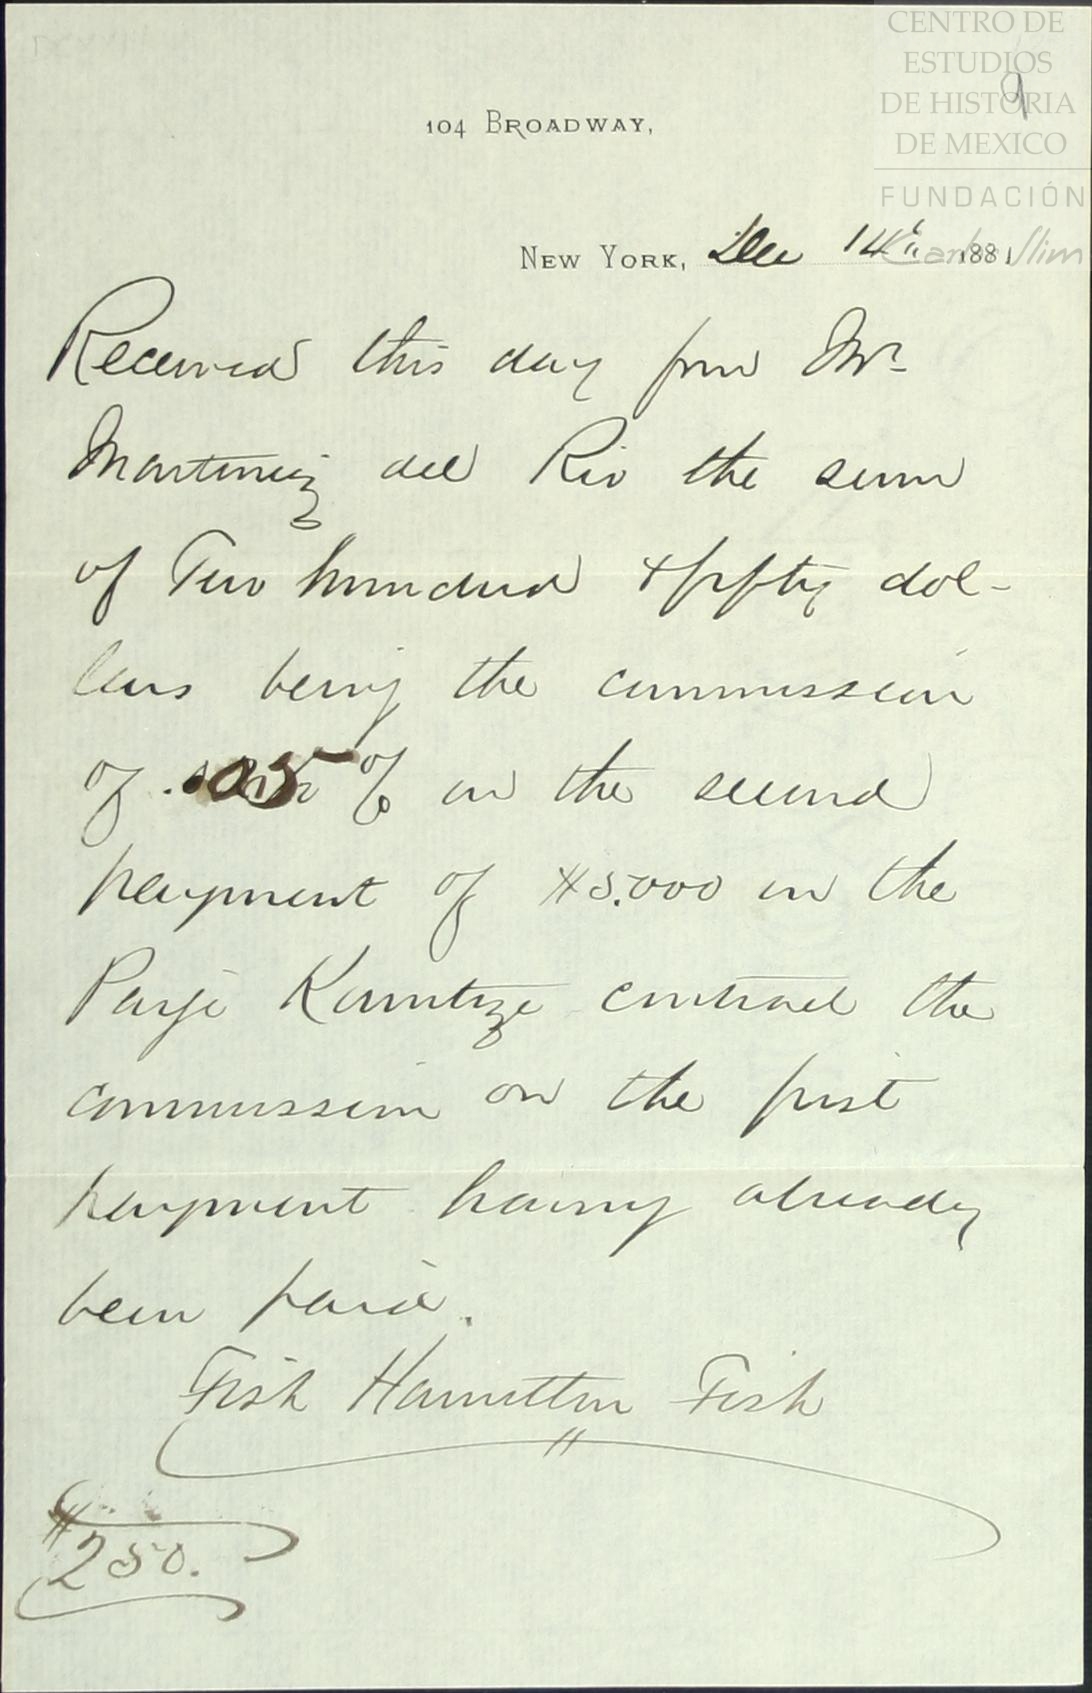 CENTRO DE
ESTUDIOS
DE HISTORIA
DE MEXICO
FUNDACIÓN
Carlos Slim
9
104 BROADWAY,
NEW YORK, Dec 14th 1881
Received this day from Mr
Martinez del Rio the sum
of Two hundred & fifty dol-
lars being the commission
of .05 % on the second
payment of $5.000 on the
contract the
commission on the first
payment having already
been paid.
Fish Hamilton Fish
$250.